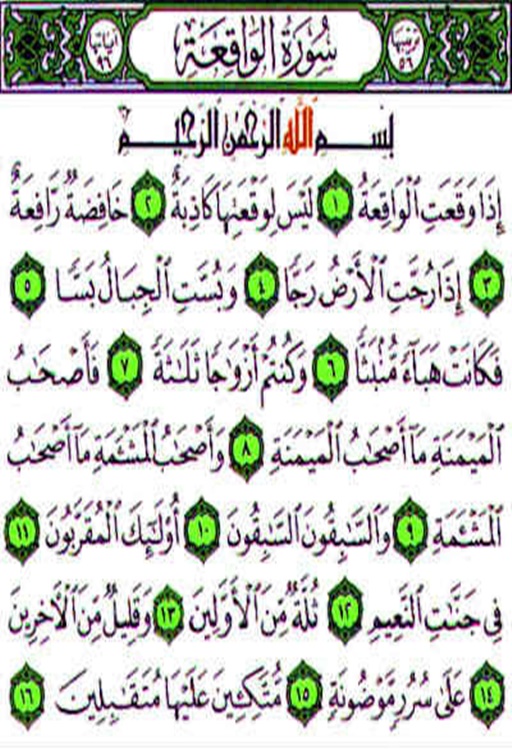 ترتيبها ٥٦ سُورَةُ الْوَاقِعَةِ آياتها ٩٦
بِسْمِ اللَّهِ الرَّحْمَٰنِ الرَّحِيمِ
إِذَا وَقَعَتِ ٱلْوَاقِعَةُ ١ لَيْسَ لِوَقْعَتِهَا كَاذِبَةٌ ٢ خَافِضَةٌ رَّافِعَةٌ
٣ إِذَا رُجَّتِ ٱلْأَرْضُ رَجًّا ٤ وَبُسَّتِ ٱلْجِبَالُ بَسًّا ٥
فَكَانَتْ هَبَآءً مُّنۢبَثًّا ٦ وَكُنتُمْ أَزْوَٰجًا ثَلَٰثَةً ٧ فَأَصْحَٰبُ
ٱلْمَيْمَنَةِ مَآ أَصْحَٰبُ ٱلْمَيْمَنَةِ ٨ وَأَصْحَٰبُ ٱلْمَشْـَٔمَةِ مَآ أَصْحَٰبُ
ٱلْمَشْـَٔمَةِ ٩ وَٱلسَّٰبِقُونَ ٱلسَّٰبِقُونَ ١٠ أُو۟لَٰٓئِكَ ٱلْمُقَرَّبُونَ ١١
فِى جَنَّٰتِ ٱلنَّعِيمِ ١٢ ثُلَّةٌ مِّنَ ٱلْأَوَّلِينَ ١٣ وَقَلِيلٌ مِّنَ ٱلْءَاخِرِينَ
١٤ عَلَىٰ سُرُرٍ مَّوْضُونَةٍ ١٥ مُّتَّكِـِٔينَ عَلَيْهَا مُتَقَٰبِلِينَ ١٦